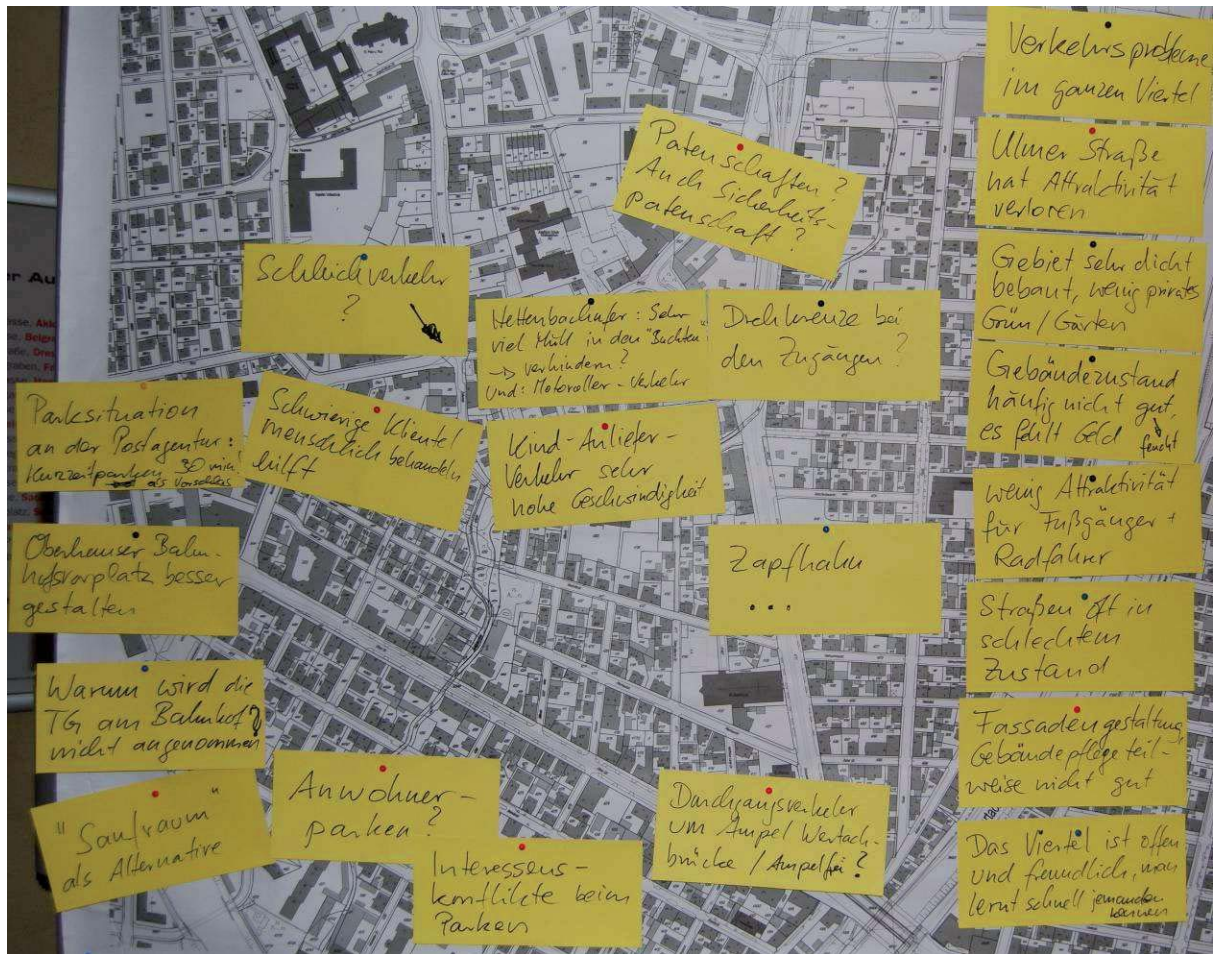 Verkehrsprobleme
im ganzen Viertel
Ulmer Straße
hat Attraktivität
verloren
Gebiet sehr dicht
bebaut, wenig privates
Grün / Gärten
Gebäudezustand
häufig nicht gut,
es fehlt Geld
feucht
wenig Attraktivität
für Fußgänger +
Radfahrer
Straßen oft in
schlechtem
Zustand
Fassadengestaltung,
Gebäudepflege teil-
weise nicht gut
Das Viertel ist offen
und freundlich, man
lernt schnell jemanden
kennen
Patenschaften?
Auch Sicherheits-
patenschaft?
Schleichverkehr
?
Hettenbachufer: Sehr
viel Müll in den "Buchten"
→ verhindern?
Und: Motoroller-Verkehr
Drehkreuze bei
den Zugängen?
Parksituation
an der Postagentur:
Kurzzeitparken 30 min
als Vorschlag
Schwierige Klientel
menschlich behandeln
hilft
Kind-Anliefer-
Verkehr sehr
hohe Geschwindigkeit
Oberhauser Bahn-
hofsvorplatz besser
gestalten
Zapfhahn
...
Warum wird die
TG am Bahnhof
nicht angenommen?
"Saufraum"
als Alternative
Anwohner-
parken?
Interessens-
konflikte beim
Parken
Durchgangsverkehr
um Ampel Wertach-
brücke / Ampelfrei?